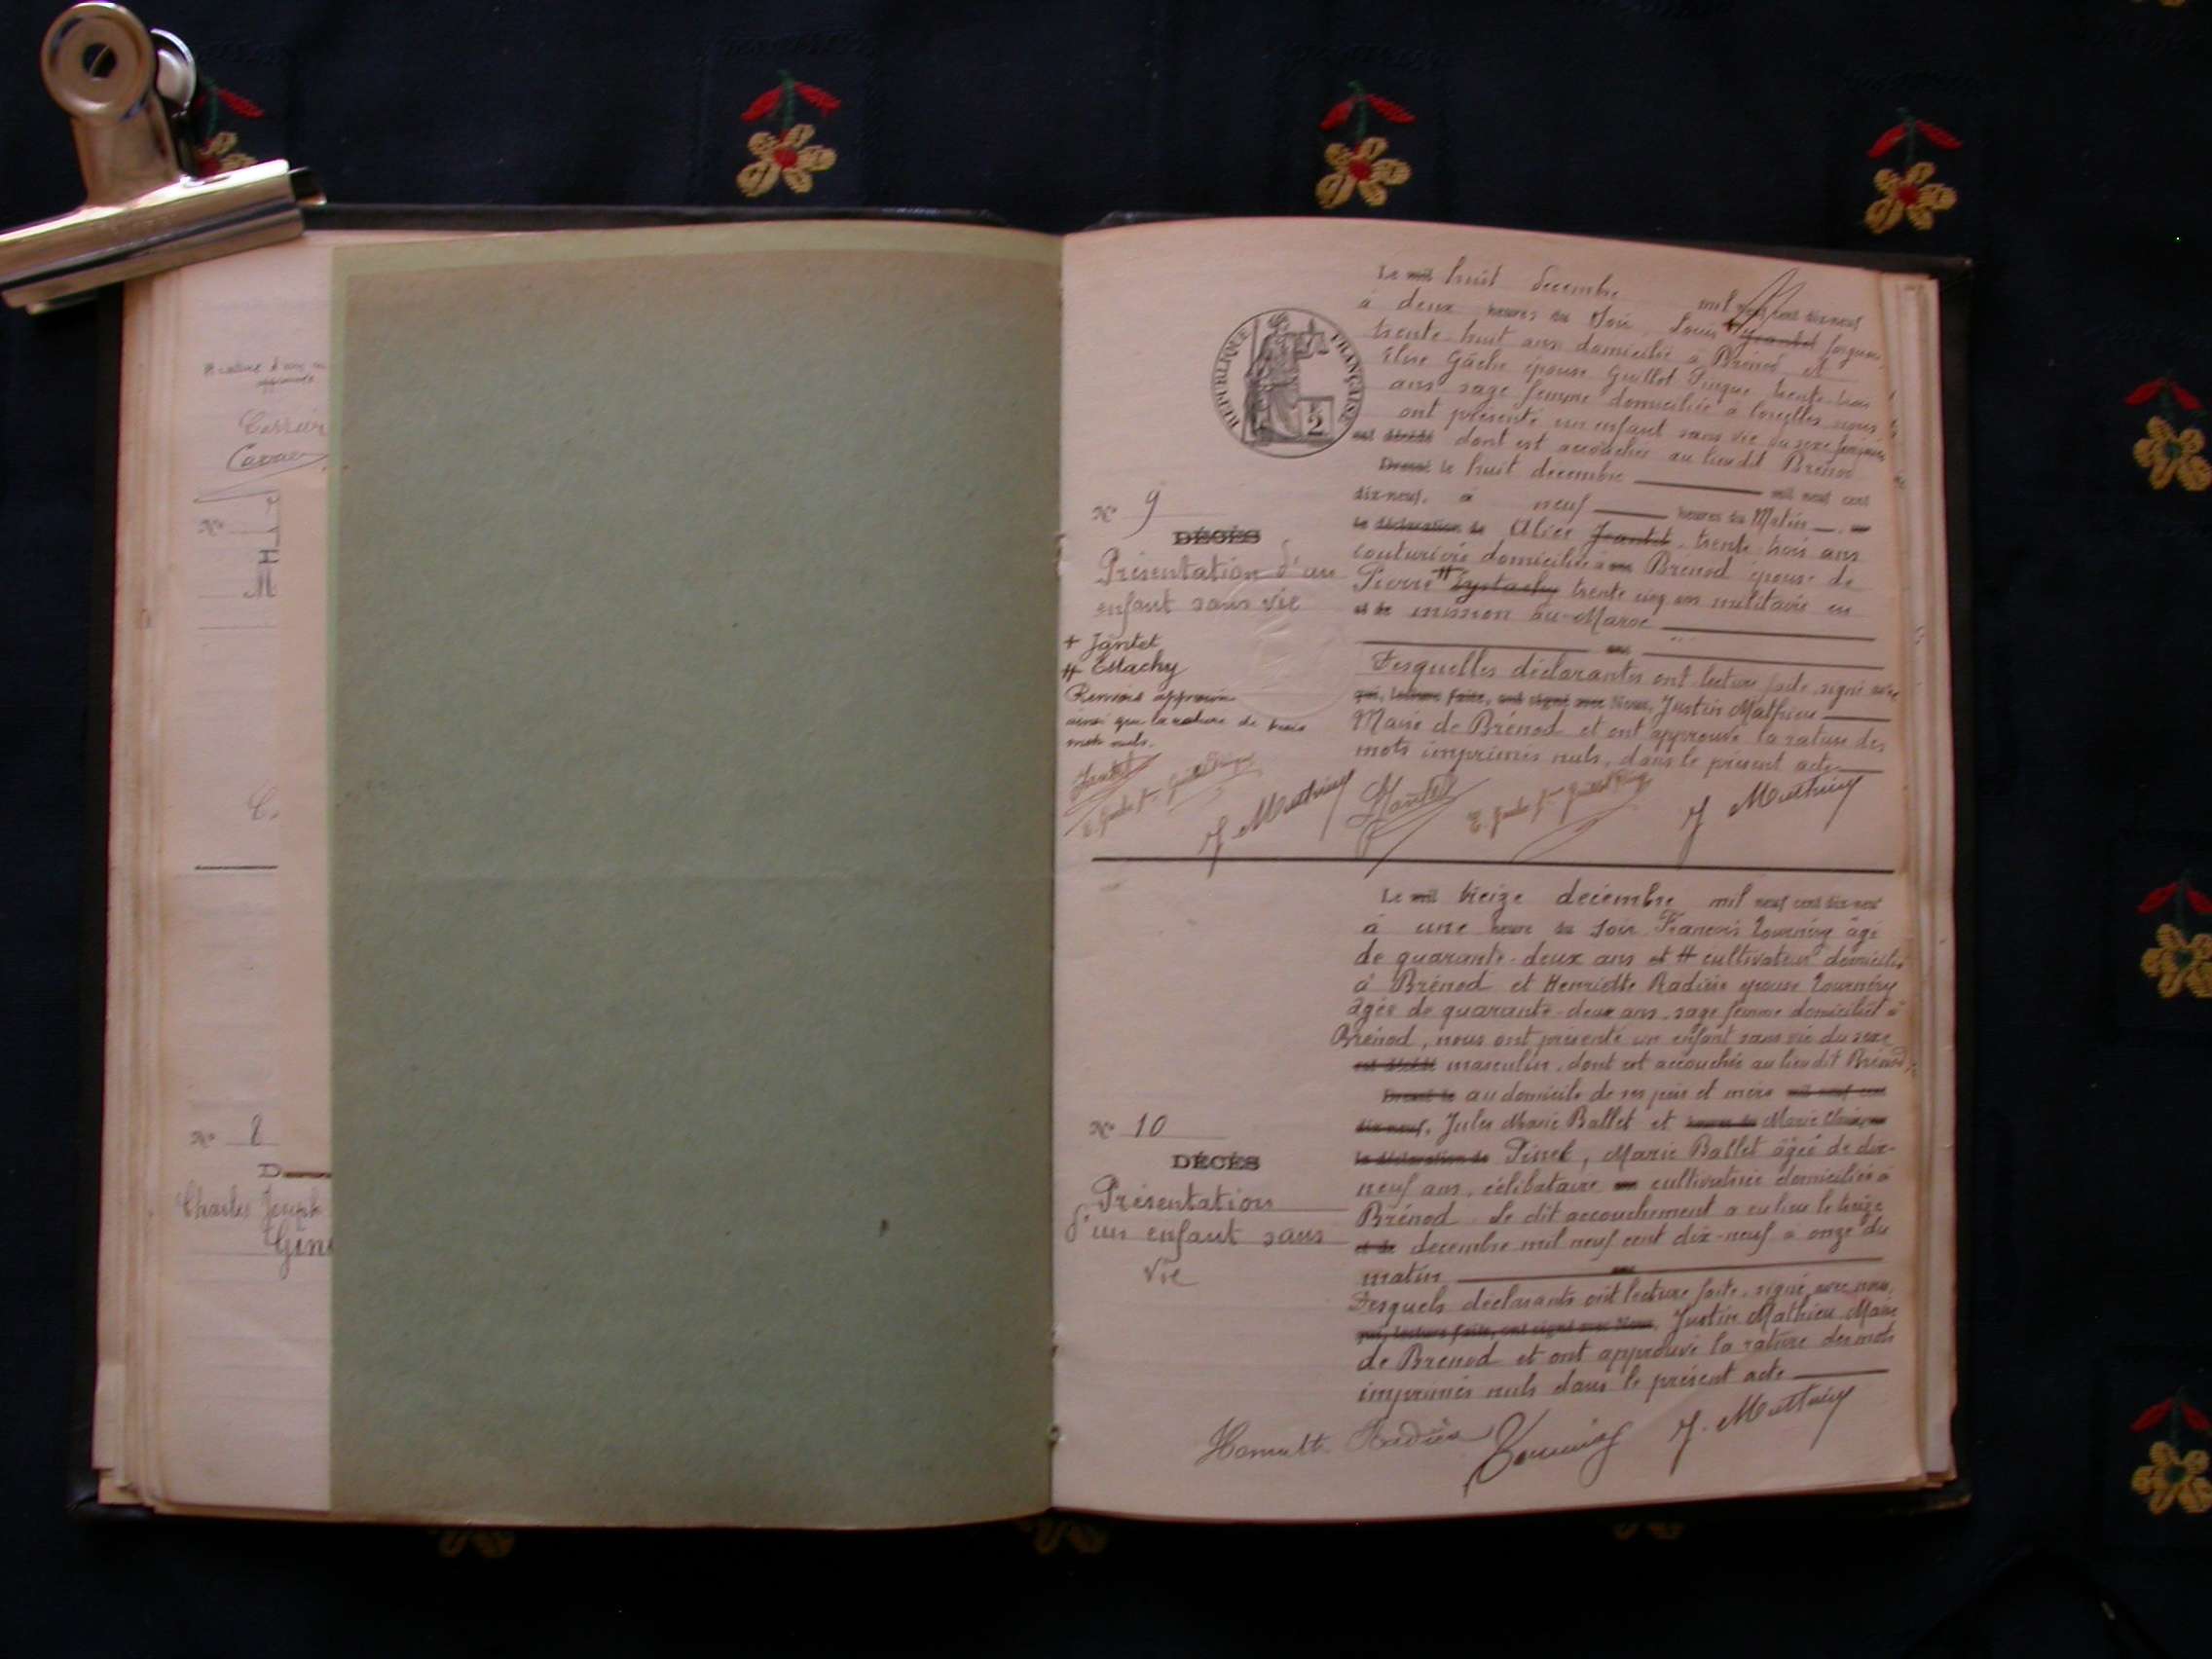 Nº
Nº 8
D
Charles Joseph
RÉPUBLIQUE FRANÇAISE
2
Le mil huit decembre mil neuf cent dix-neuf
à deux heures du Soir, Louis Jeantet forgeron,
trente-huit ans domicilié à Brénod, et
Elise Gache épouse Guillot Pingue trente-trois
ans sage femme domiciliée à Corcelles, nous
ont présenté un enfant sans vie du sexe féminin
est décédé dont est accouchée au lieu dit Brénod
Dressé le huit decembre mil neuf cent
dix-neuf, à neuf heures du Matin
la déclaration de Alice Jeantet, trente trois ans
couturière domiciliée à Brenod épouse de
Pierre # Eystachy trente cinq ans militaire en
et de mission au Maroc
Nº 9
DÉCÈS
Présentation d'un
enfant sans vie
+ Jantet
# Estachy
Renvois approuvés
ainsi que la rature de trois
mots nuls.
Desquelles déclarantes ont lecture faite, signé avec
qui, lecture faite, ont signé avec Nous, Justin Mathieu
Maire de Brénod et ont approuvé la rature des
mots imprimés nuls, dans le présent acte.
J Mathieu Jantet J Mathieu
Le mil treize decembre mil neuf cent dix-neuf
à une heure du soir François Tournéry âgé
de quarante-deux ans et # cultivateur domicilié
à Brénod et Henriette Radix épouse Tournéry
âgée de quarante-deux ans, sage femme domiciliée à
Brénod, nous ont présenté un enfant sans vie du sexe
est décédé masculin, dont est accouchée au lieu dit Brénod,
Dressé le au domicile de ses père et mère mil neuf cent
dix-neuf, Jules Marie Ballet et heures du Marie
la déclaration de Pinet, Marie Ballet âgée de dix-
neuf ans, célibataire cultivatrice domiciliée à
Brénod. Le dit accouchement a eu lieu le treize
et de decembre mil neuf cent dix-neuf à onze du
matin
Nº 10
DÉCÈS
Présentation
d'un enfant sans
vie
Desquels déclarants ont lecture faite, signé avec nous,
qui, lecture faite, ont signé avec Nous, Justin Mathieu Maire
de Brenod et ont approuvé la rature des mots
imprimés nuls dans le présent acte
J. Mathieu